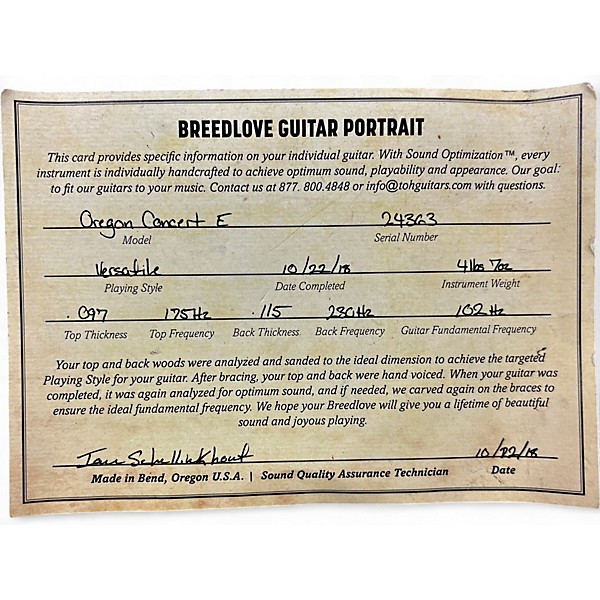 BREEDLOVE GUITAR PORTRAIT
This card provides specific information on your individual guitar. With Sound Optimization™, every
instrument is individually handcrafted to achieve optimum sound, playability and appearance. Our goal:
to fit our guitars to your music. Contact us at 877. 800.4848 or info@tohguitars.com with questions.
Oregon Concert E 24363
Model Serial Number
Versatile 10/22/18 4lbs 7oz
Playing Style Date Completed Instrument Weight
.097 175Hz .115 230Hz 102Hz
Top Thickness Top Frequency Back Thickness Back Frequency Guitar Fundamental Frequency
Your top and back woods were analyzed and sanded to the ideal dimension to achieve the targeted
Playing Style for your guitar. After bracing, your top and back were hand voiced. When your guitar was
completed, it was again analyzed for optimum sound, and if needed, we carved again on the braces to
ensure the ideal fundamental frequency. We hope your Breedlove will give you a lifetime of beautiful
sound and joyous playing.
10/22/18
Made in Bend, Oregon U.S.A. | Sound Quality Assurance Technician Date